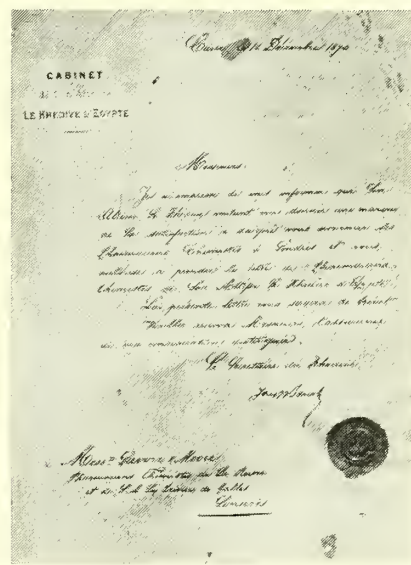 Caire, le 16 Décembre 1890
CABINET
de
LE KHEDIVE D'EGYPTE
Messieurs
Je m'empresse de vous informer que Son
Altesse le Khédive voulant vous donner une marque
de Sa satisfaction a daigné vous nommer Ses
Pharmaciens Chimistes à Londres et vous
autorise à prendre le titre de "Pharmaciens
Chimistes de Son Altesse le Khédive d'Egypte".
La présente lettre vous servira de
Veuillez recevoir Messieurs, l'assurance
de ma considération distinguée.
Le Secrétaire du Khédive
Mess.rs Savory & Moore
Pharmaciens Chimistes de La Reine
et de S.A. Le Prince de Galles
Londres